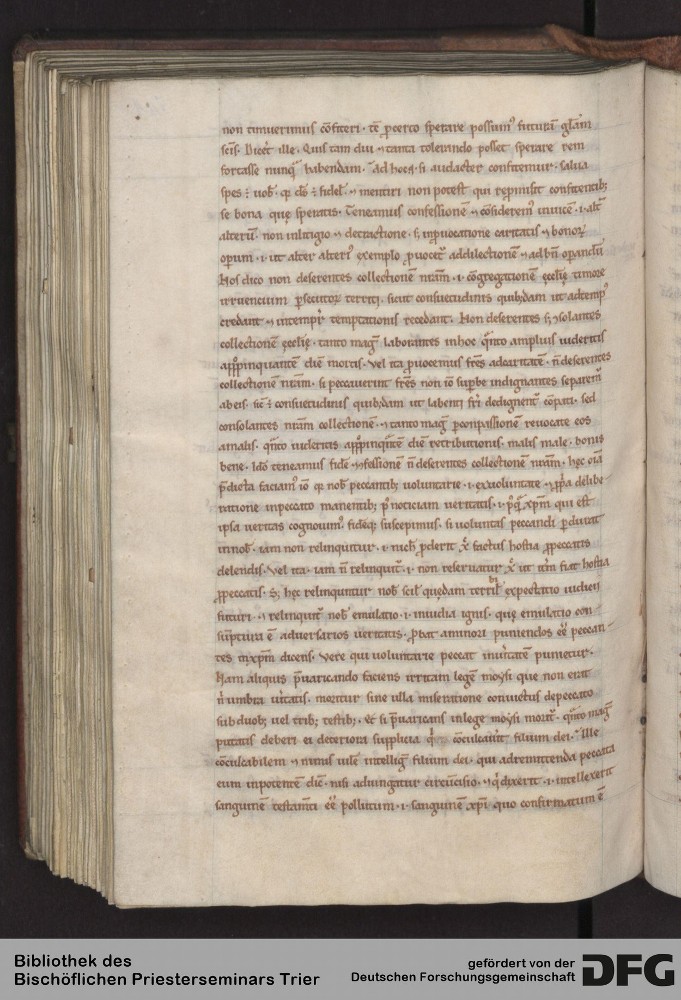 non timuerimus c̄fiteri · tē ꝓcerto sperare possumꝰ futurā gl̄am
sc̄is. Dicet̄ ille. Quis tam diu ⁊ tanta tolerando posset sperare rem
fortasse nunq̄ habendam. ad hoc · si audacter confitemur · salua
spes ē uob̄ · qꝛ d̄s ē fidel̄ · ⁊ mentiri non potest qui repmisit confitentib;
se bona quę speratis. Teneamus confessionē ⁊ c̄siderem᷒ inuicē · i · alt̄
alterū · non inlitigio ⁊ detractione · s; inꝓuocatione caritatis ⁊ bonoꝝ
operum · i · ut alter alteriꝰ exemplo ꝓuocet᷒ addilectionē ⁊ adbn̄ operandū
Hos dico non deserentes collectionē nr̄am · i · c̄gregationē ęcclię timore
irruencium ꝑsecutoꝝ territi · sicut consuetudinis quibꝰdam ut adtempꝰ
credant ⁊ intempr̄ temptationis recedant. Non deserentes s; ꝯsolantes
collectionē ęcclię · tanto mag᷒ laborantes inhoc q̄nto amplius uideritis
apꝓpinquantē diem mortis. Vel ita ꝓuocemus fr̄es adcaritatē · n̄ deserentes
collectionē nr̄am · si peccauerint fr̄es non iō supbe indignantes separem᷒
abeis · sic̄ ē consuetudinis quibꝰdam ut labenti fr̄i dedignent᷒ c̄pati · sed
consolantes nr̄am collectionē · ⁊ tanto mag᷒ ꝑconpassionē reuocate eos
amalis · q̄nto uideritis apꝓpinq̄ntē diē retributionis · malis male · bonis
bene. Ido teneamus fidē ⁊ ꝯfessionē n̄ deserentes collectionē nr̄am · hęc oīa
p̄dicta faciamꝰ iō qꝛ nob̄ peccantib; voluntarie · i · exuoluntate ⁊ ꝓpa delibe-
ratione inpeccato manentib; p᷒ noticiam ueritatis · i · p᷒q̄ xp̄m qui est
ipsa ueritas cognouimꝰ fideq; suscepimus · si uoluntas peccandi ꝑdurat
in nob̄ · iam non relinquitur · i · nich̄ ꝓderit qđ factus hostia ꝓpeccatis
delendis. Vel ita · iam n̄ relinquit᷒ · i · non reseruatur qđ ut itm̄ fiat hostia
ꝓpeccatis. S; hęc relinquntur nob̄ scil̄ quędam terribil᷒ expectatio iudicii
futuri · ⁊ relinquit᷒ nob̄ emulatio · i · inuidia ignis · quę emulatio con-
sūptura ē aduersarios ueritatis. ꝓbat aminori puniendos eē peccan-
tes inxp̄m dicens. Vere qui uoluntarie peccat inuitatē punietur.
Nam aliquis p̄uaricando faciens irritam legē moysi que non erat
n̄ umbra uitatis · moritur sine ulla miseratione conuictus depeccato
sub duob; uel trib; testib;. Et si p̄uaricans inlege moysi morit᷒ · q̄nto mag᷒
putatis deberi ei deteriora supplicia q̄ c̄culcauit filium dei. Ille
c̄culcabilem ⁊ nimis uilē intelligit filium dei · qui adremittenda peccata
eum inpotentē dic̄ · nisi adiungatur circūcisio · ⁊ q̄ dixerit · i · intellexerit
sanguinē testam̄ti eē pollutum · i · sanguinē xp̄i quo confirmatum ē
Bibliothek des
Bischöflichen Priesterseminars Trier
gefördert von der
Deutschen Forschungsgemeinschaft
DFG